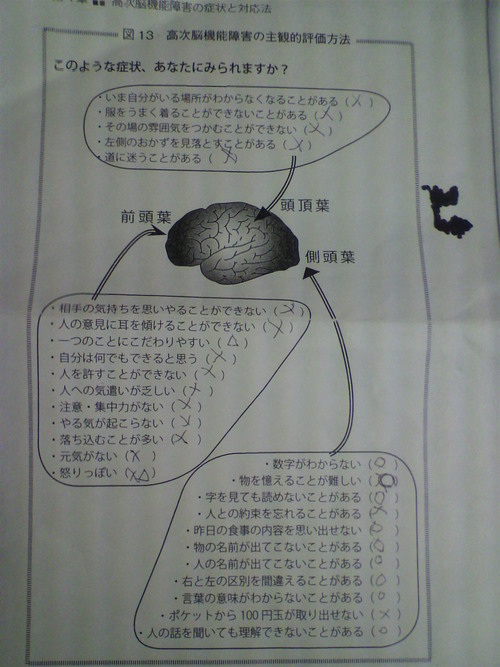 高次脳機能障害の症状と対応法
図13 高次脳機能障害の主観的評価方法
このような症状、あなたにみられますか？
・いま自分がいる場所がわからなくなることがある（×）
・服をうまく着ることができないことがある（×）
・その場の雰囲気をつかむことができない（×）
・左側のおかずを見落とすことがある（×）
・道に迷うことがある（×）
前頭葉
頭頂葉
側頭葉
・相手の気持ちを思いやることができない（×）
・人の意見に耳を傾けることができない（×）
・一つのことにこだわりやすい（△）
・自分は何でもできると思う（×）
・人を許すことができない（×）
・人への気遣いが乏しい（×）
・注意・集中力がない（×）
・やる気が起こらない（×）
・落ち込むことが多い（×）
・元気がない（×）
・怒りっぽい（×△）
・数字がわからない（○）
・物を憶えることが難しい（×○）
・字を見ても読めないことがある（○）
・人との約束を忘れることがある（×）
・昨日の食事の内容を思い出せない（○）
・物の名前が出てこないことがある（○）
・人の名前が出てこないことがある（○）
・右と左の区別を間違えることがある（○）
・言葉の意味がわからないことがある（○）
・ポケットから100円玉が取り出せない（×）
・人の話を聞いても理解できないことがある（○）